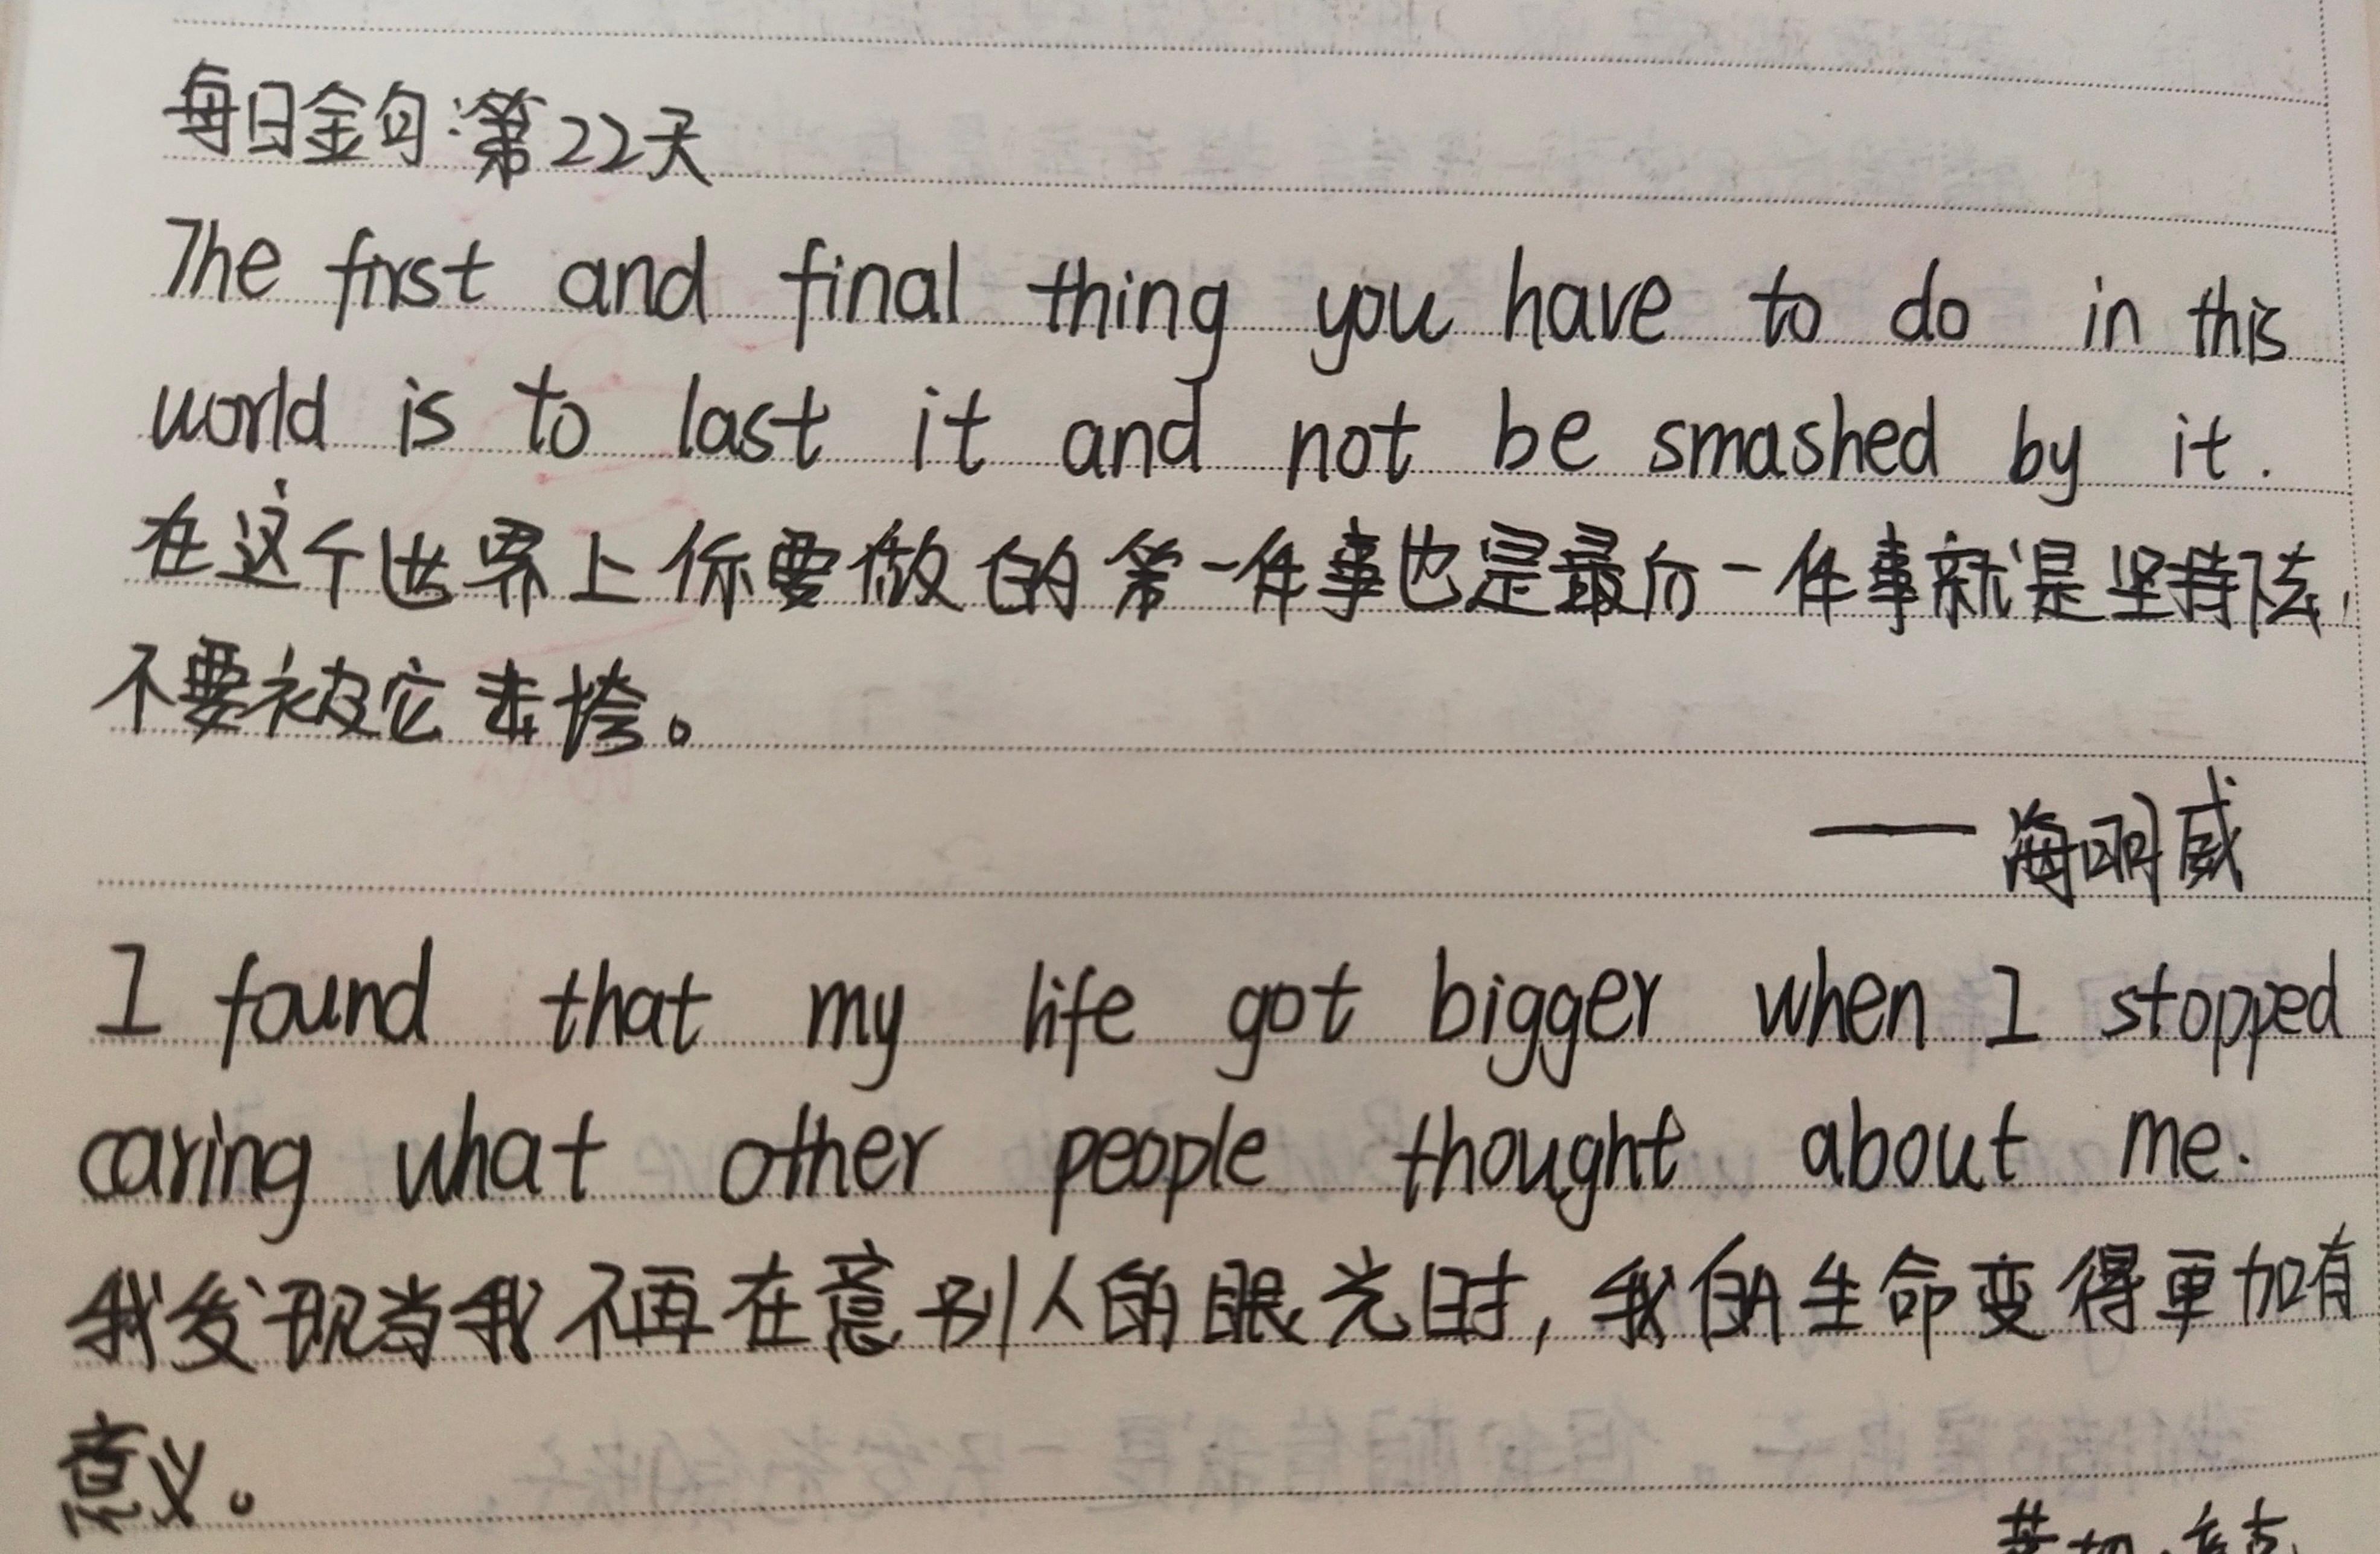 每日金句:第22天
The first and final thing you have to do in this
world is to last it and not be smashed by it.
在这个世界上你要做的第一件事也是最后一件事就是坚持法,
不要被它击垮。
——海明威
I found that my life got bigger when I stopped
caring what other people thought about me.
我发现当我不再在意别人的眼光时,我的生命变得更加有
意义。